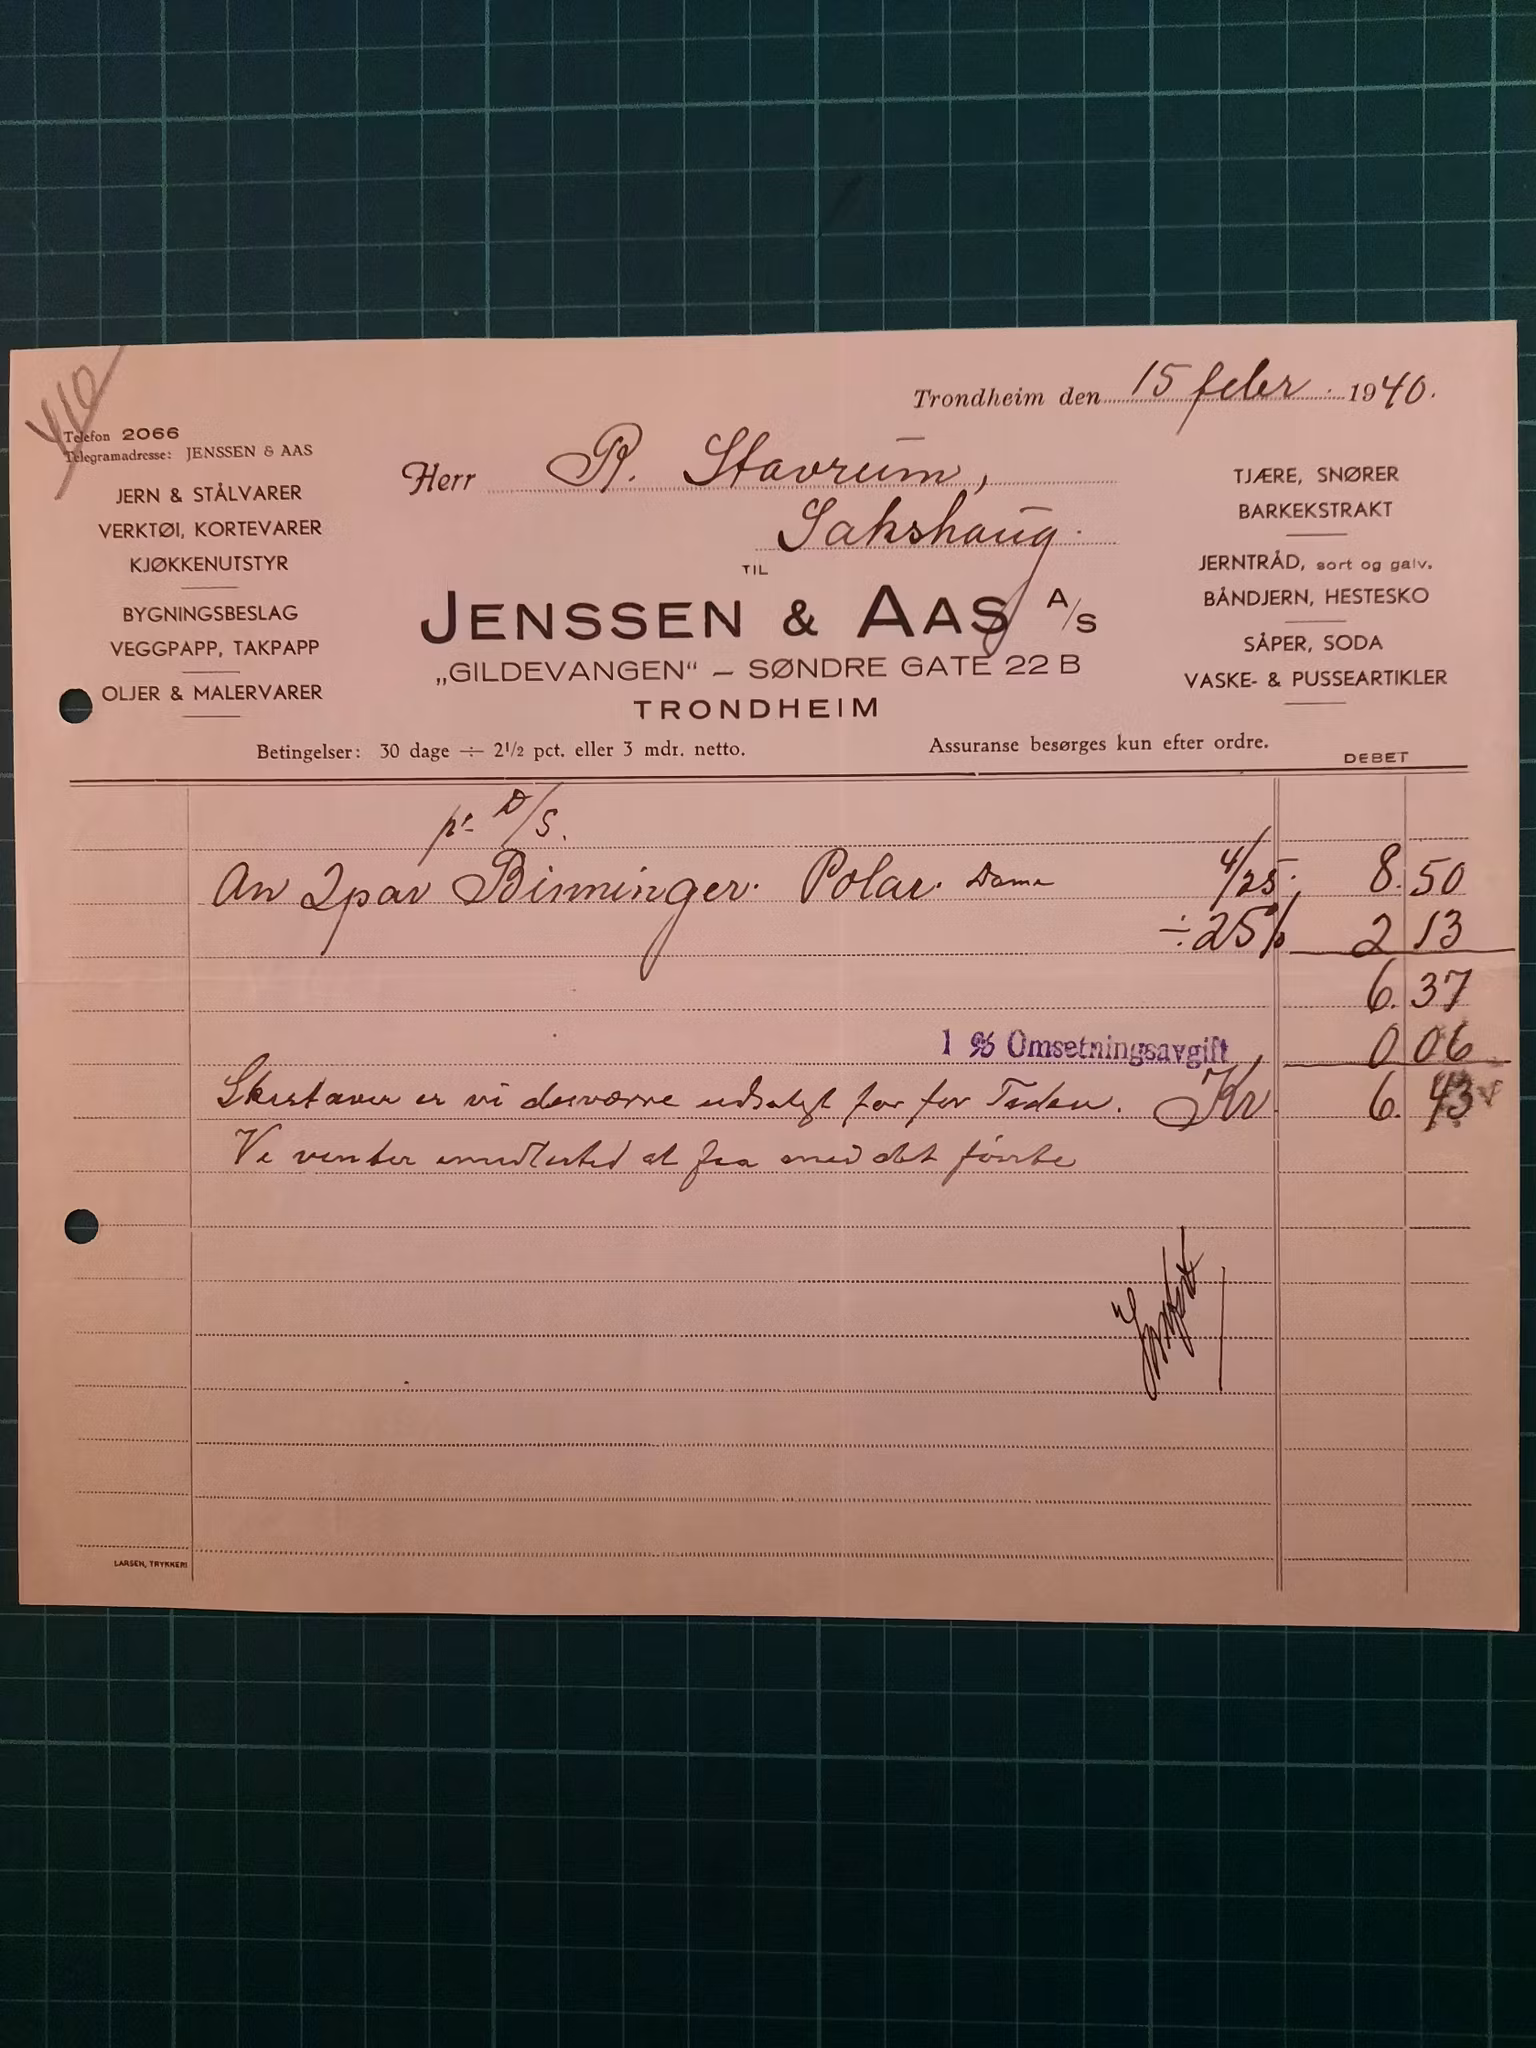 Trondheim den 15 febr. 1940.
Telefon 2066
Telegramadresse: JENSSEN & AAS
Herr R. Stavrum,
Sakshaug.
JERN & STÅLVARER
VERKTØI, KORTEVARER
KJØKKENUTSTYR
BYGNINGSBESLAG
VEGGPAPP, TAKPAPP
OLJER & MALERVARER
TIL
JENSSEN & AAS A/S
„GILDEVANGEN“ – SØNDRE GATE 22 B
TRONDHEIM
TJÆRE, SNØRER
BARKEKSTRAKT
JERNTRÅD, sort og galv.
BÅNDJERN, HESTESKO
SÅPER, SODA
VASKE- & PUSSEARTIKLER
Betingelser: 30 dage ÷ 2½ pct. eller 3 mdr. netto.
Assuranse besørges kun efter ordre.
DEBET
pr D/S.
An 2 par Binninger. Polar. Dame 4/25. 8.50
÷ 25% 2 13
6.37
1 % Omsetningsavgift 0 06
er vi desværre udsolgt for for Tiden. Kr 6.43
Vi venter imidlertid at faa med det første
LARSEN, TRYKKERI